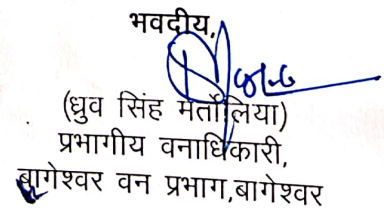 भवदीय,
(ध्रुव सिंह मर्तोलिया)
प्रभागीय वनाधिकारी,
बागेश्वर वन प्रभाग,बागेश्वर